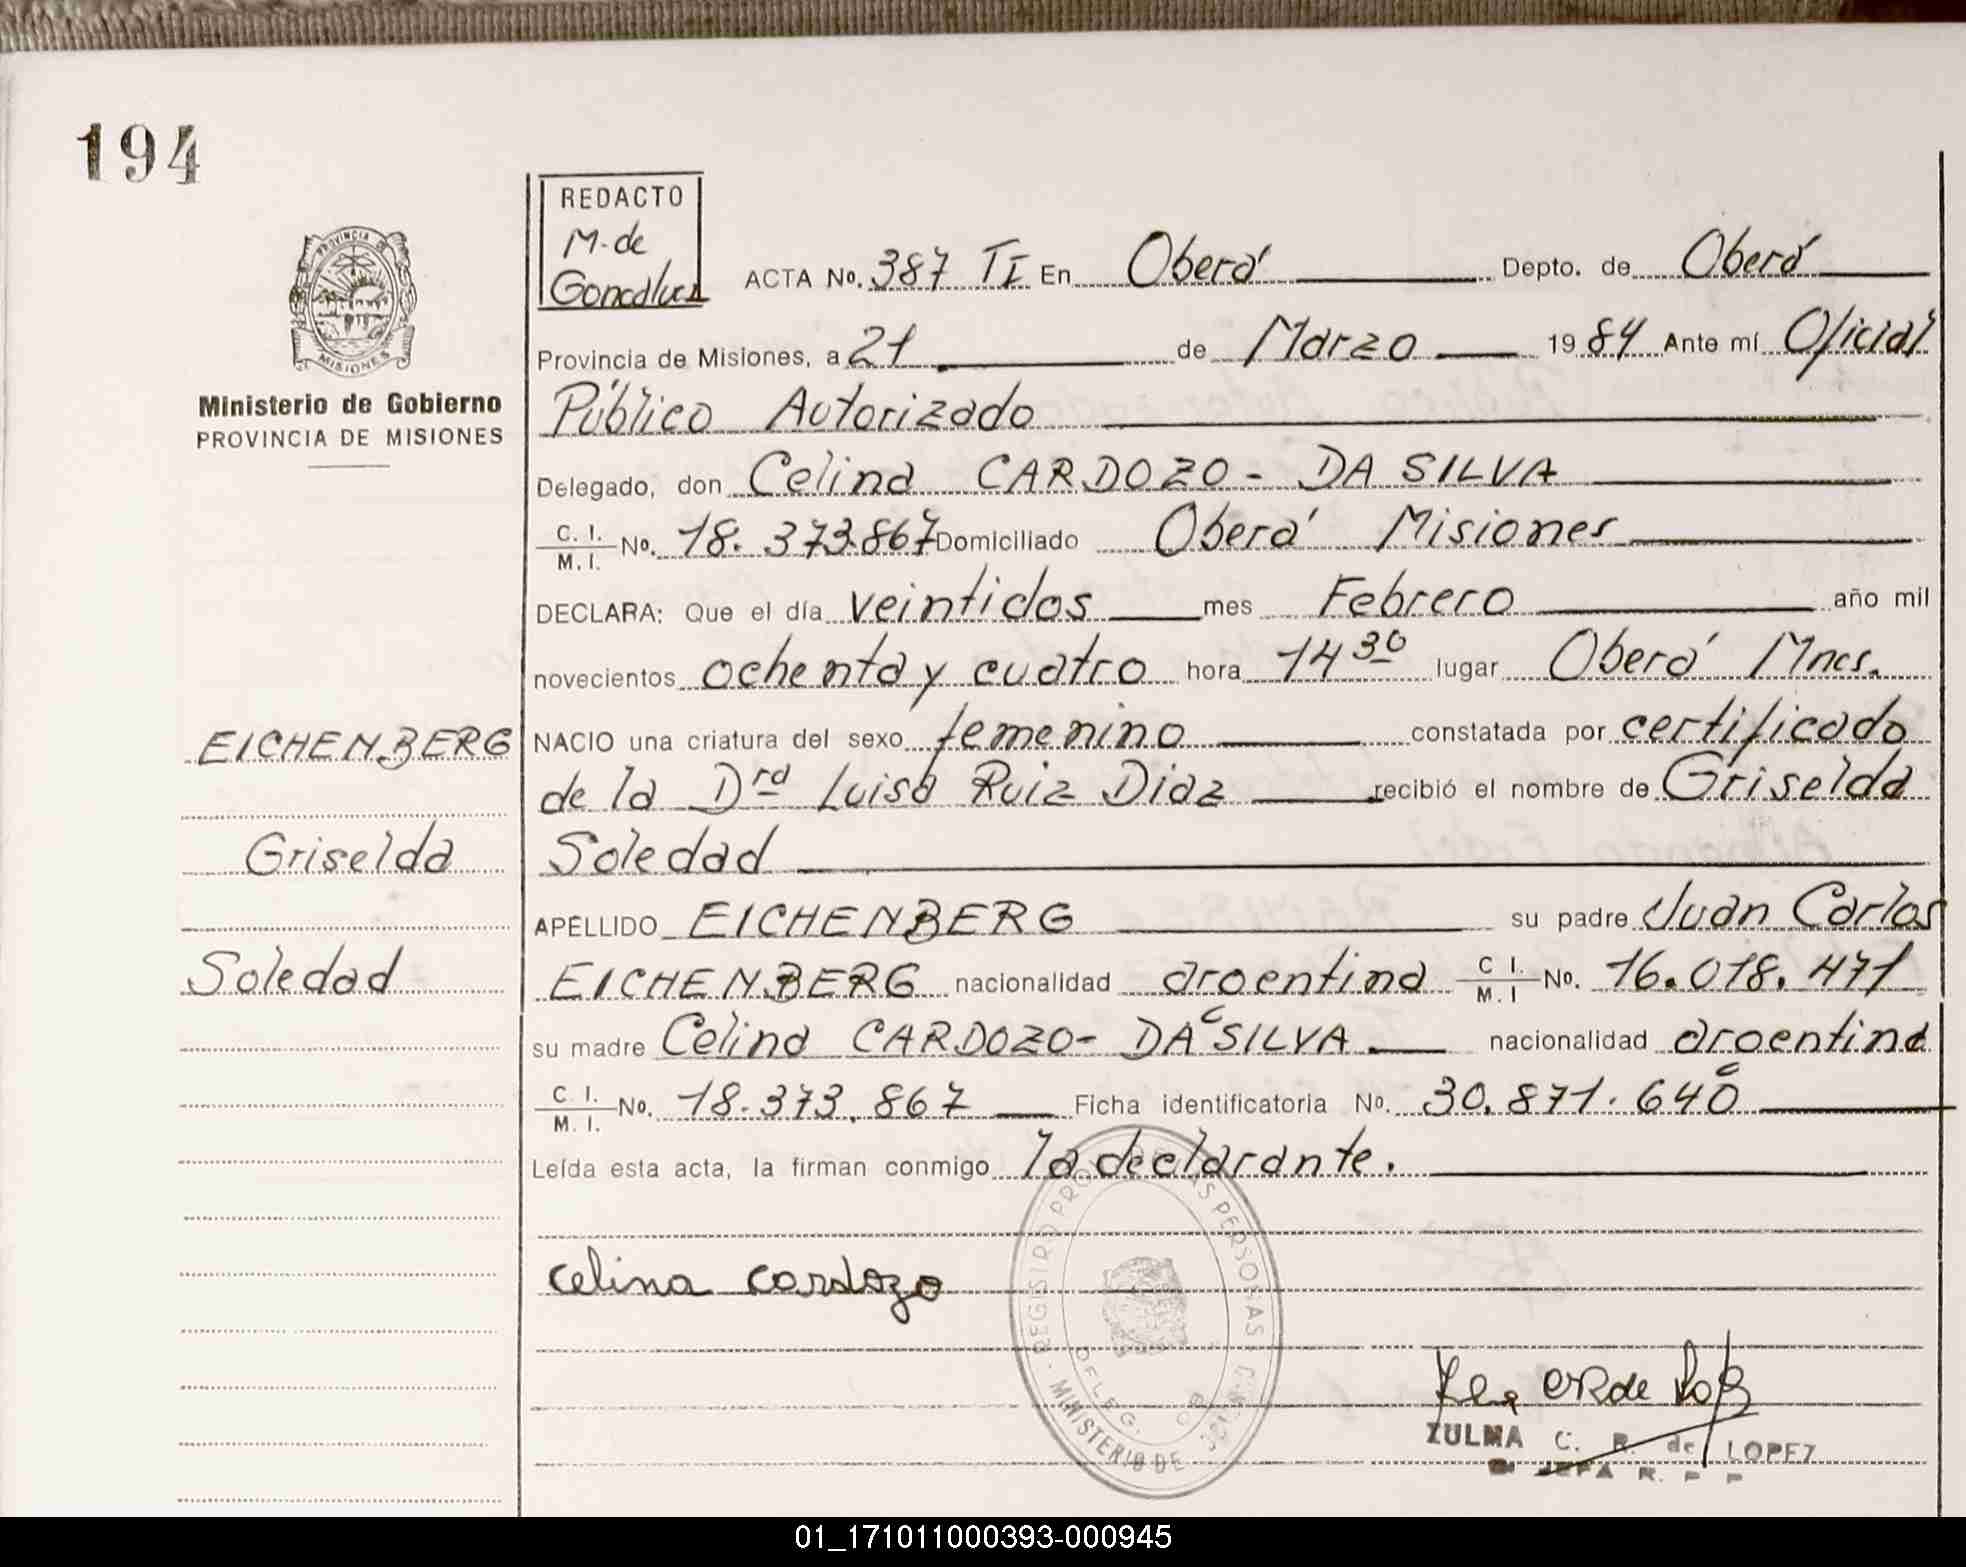 194
REDACTO
M. de
Goncalvez
PROVINCIA DE
MISIONES
Ministerio de Gobierno
PROVINCIA DE MISIONES
ACTA No. 387 TI En Oberá Depto. de Oberá
Provincia de Misiones, a 21 de Marzo 1984 Ante mí Oficial
Público Autorizado
Delegado, don Celina CARDOZO - DA SILVA
C. I.
M. I. No. 18.373.867 Domiciliado Oberá Misiones
DECLARA: Que el día veintidos mes Febrero año mil
novecientos ochenta y cuatro hora 14 30 lugar Oberá Mnes.
EICHENBERG
NACIO una criatura del sexo femenino constatada por certificado
de la Dra Luisa Ruiz Diaz recibió el nombre de Griselda
Griselda
Soledad
APELLIDO EICHENBERG su padre Juan Carlos
Soledad
EICHENBERG nacionalidad argentina C I. M. I No. 16.018.471
su madre Celina CARDOZO - DA SILVA nacionalidad argentina
C. I.
M. I. No. 18.373.867 Ficha identificatoria No. 30.871.640
Leída esta acta, la firman conmigo la declarante.
celina cardozo
REGISTRO PERSONAS
DELEG. OB
MINISTERIO DE
ZULMA C. R. de LOPEZ
JEFA R. P P
01_171011000393-000945